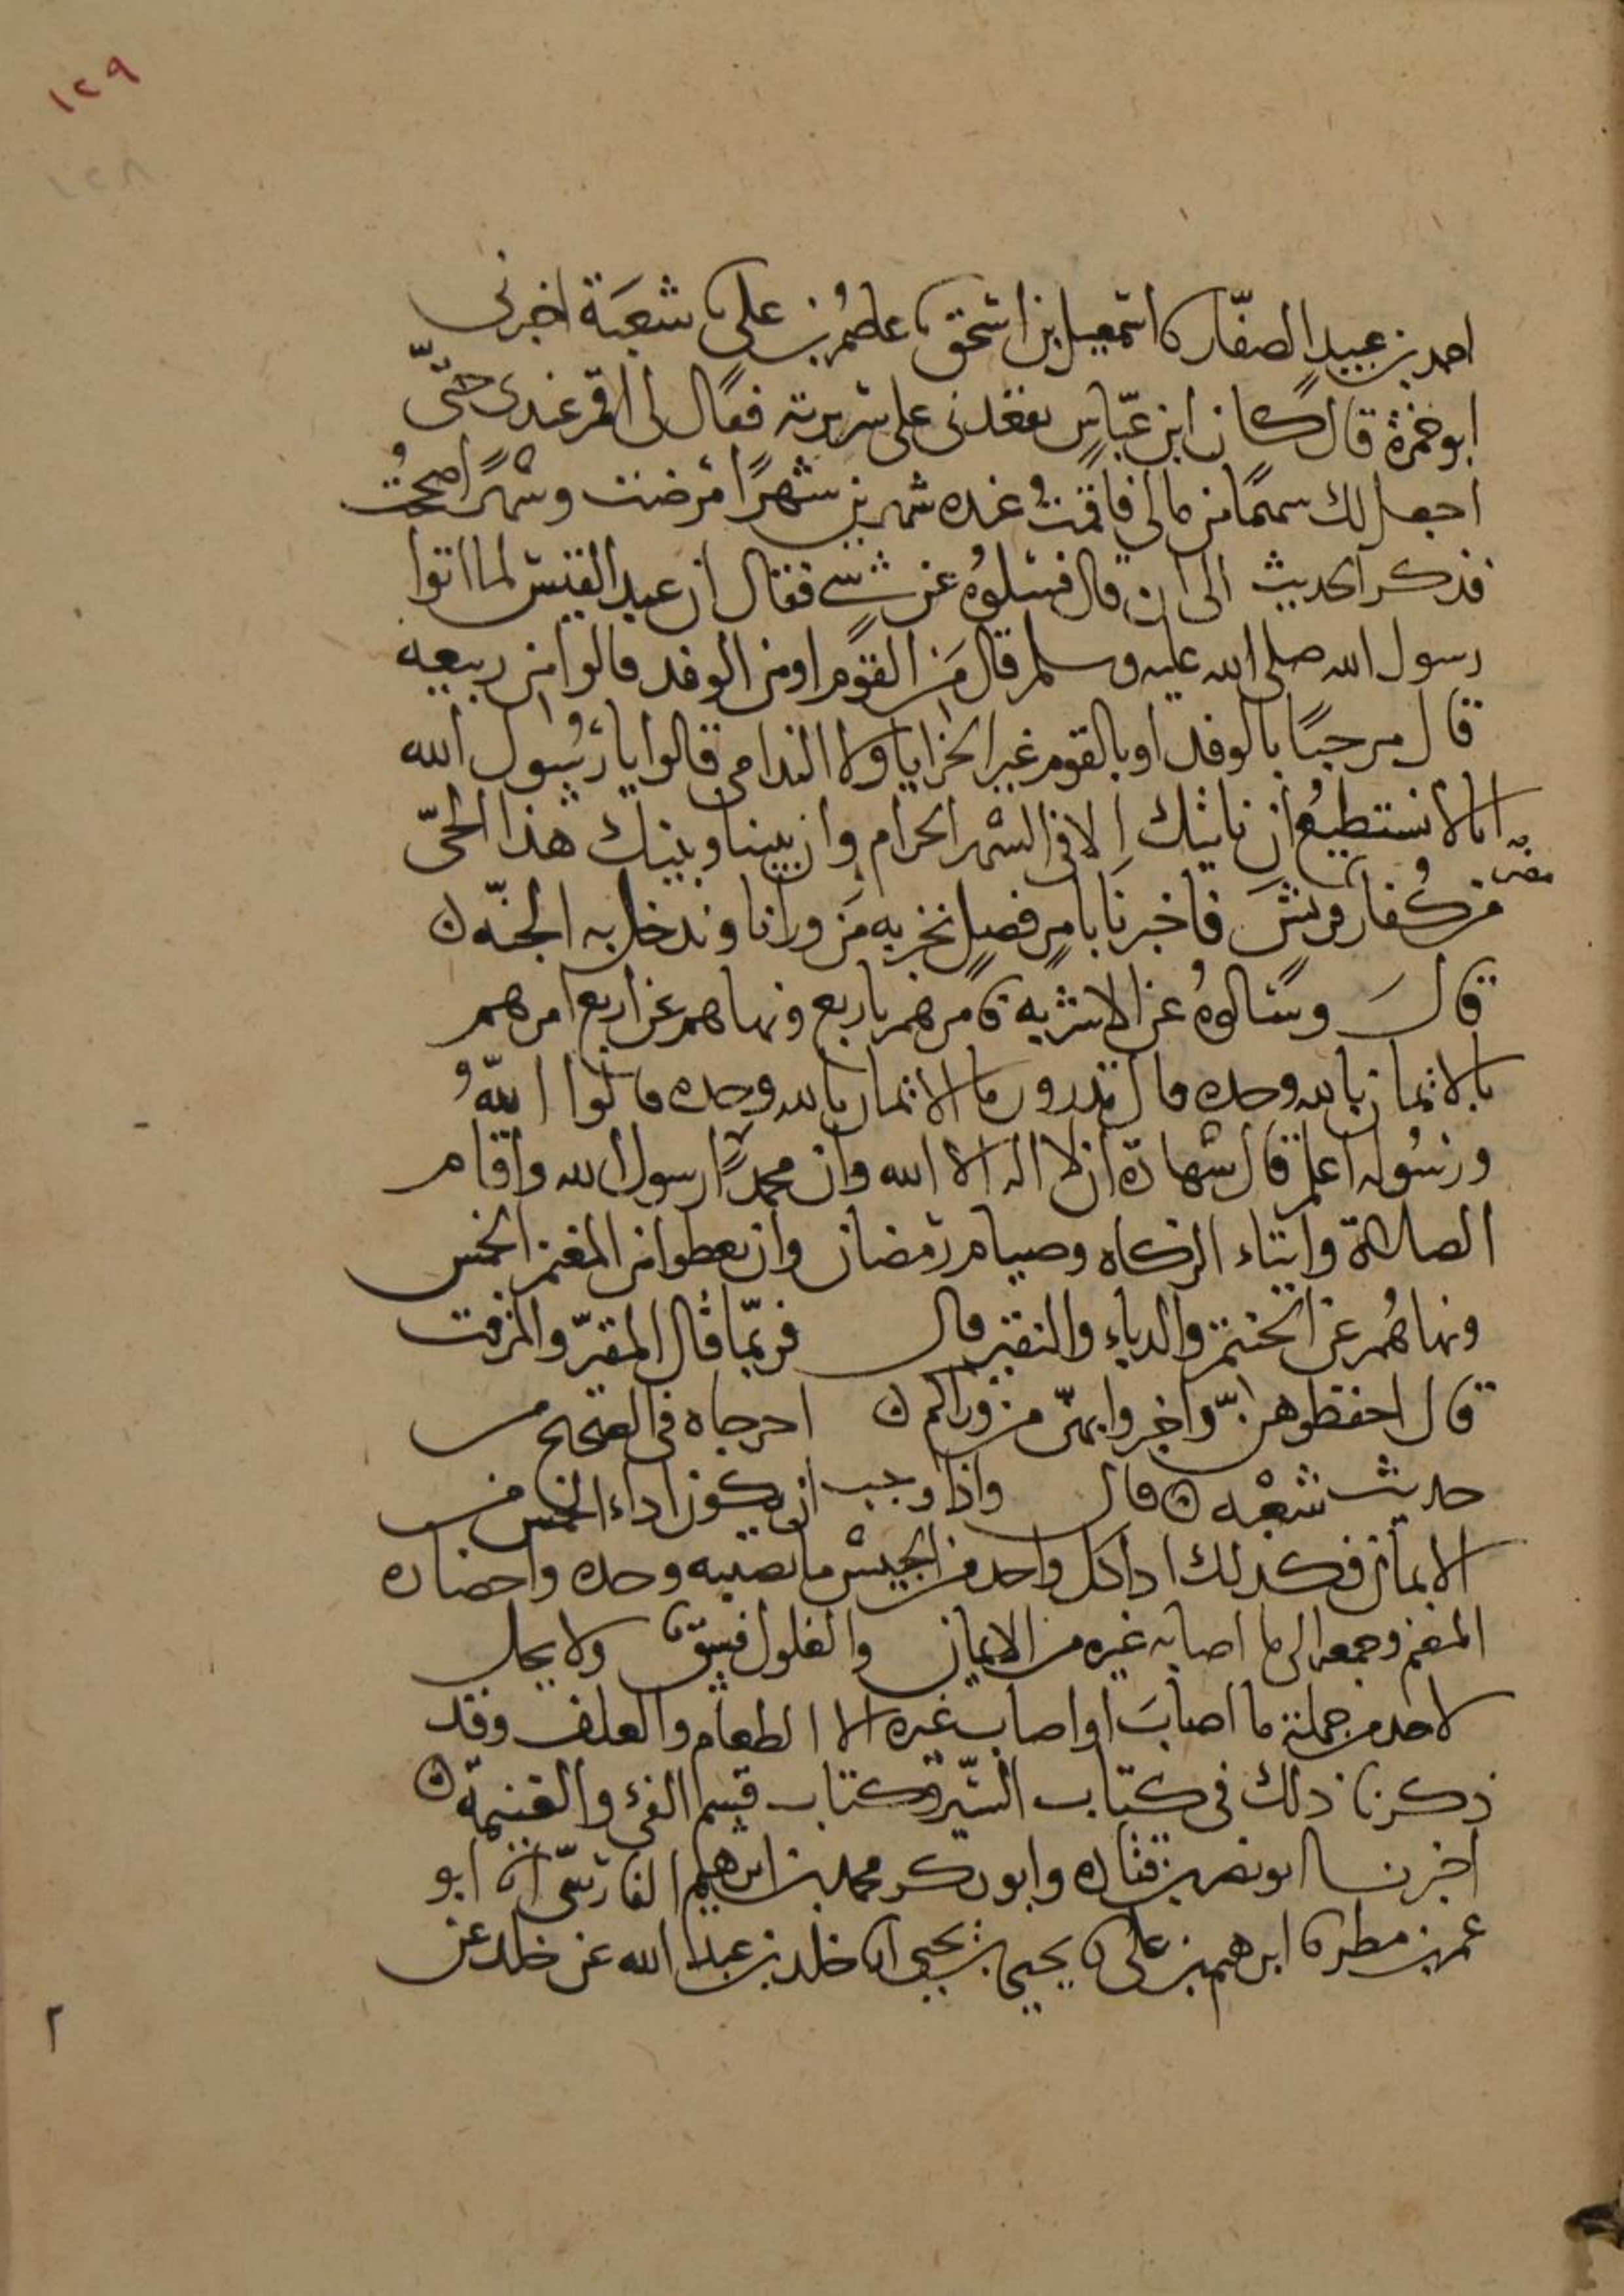 ١٢٩
١٢٨
احمد بن عبيد الصفار نا اسمعيل بن اسحق نا عاصم بن علي نا شعبة اخبرني
ابو جمرة قال كان ابن عباس يقعدني على سريره فقال لي اقم عندي حتى
اجعل لك سهما من مالي فاقمت عنده شهرين شهرا مرضت وشهرا صححت
فذكر الحديث الى ان قال فسئلوه عن شي فقال ان عبد القيس لما اتوا
رسول الله صلى الله عليه وسلم قال من القوم او من الوفد قالوا من ربيعه
قال مرحبا بالوفد او بالقوم غير الخزايا ولا الندامى قالوا يا رسول الله
انا لا نستطيع ان ناتيك الا في الشهر الحرام وان بيننا وبينك هذا الحي
مضر
من كفار قريش فاخبرنا بامر فصل نخبر به من ورانا وندخل به الجنه ٥
قال وسالوه عن الاشربه فامرهم باربع ونهاهم عن اربع امرهم
بالايمان بالله وحده قال تدرون ما الايمان بالله وحده قالوا الله
ورسوله اعلم قال شهادة ان لا اله الا الله وان محمدا رسول الله واقام
الصلاة وايتاء الزكاه وصيام رمضان وان يعطوا من المغنم الخمس
ونهاهم عن الحنتم والدباء والنقير قال فربما قال المقير والمزفت
قال احفظوهن واخبروا بهن من وراكم ٥ اخرجاه في الصحيح من
حديث شعبه ٥ قال واذا وجب ان يكون اداء الخمس من
الايمان فكذلك اداكل واحد من الجيش ما يصيبه وحده واحضاره
المغنم وجمعه الى ما اصابه غيره من الايمان والغلول فسق ولا يحل
لاحد من جملة ما اصاب او اصاب غيره الا الطعام والعلف وقد
ذكرنا ذلك في كتاب السير وكتاب قسم الفئ والغنيمة ٥
اخبرنا ابو نصر بن قتاده وابو بكر محمد بن ابرهيم الفارسي انا ابو
عمرو بن مطر نا ابرهيم بن علي نا يحيى بن يحيى انا خلد بن عبد الله عن خلد عن
٢